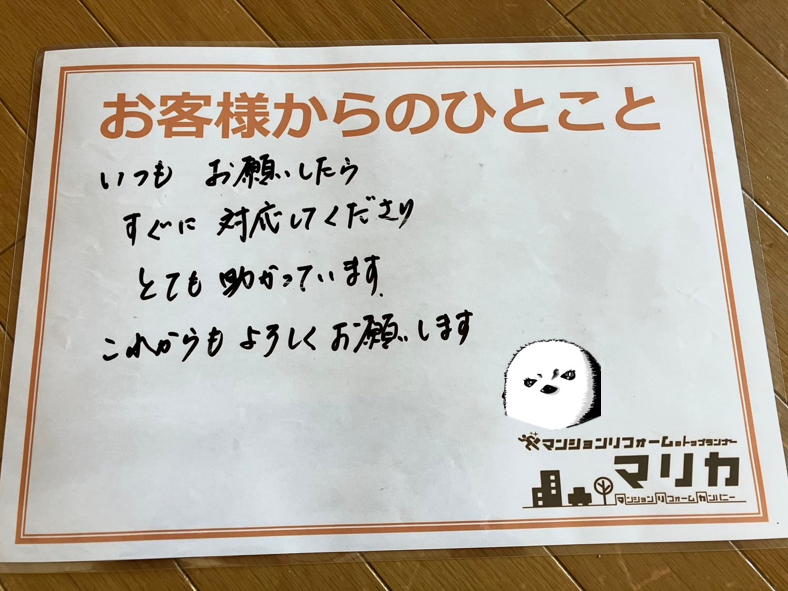 お客様からのひとこと
いつも お願いしたら
すぐに 対応してくださり
とても 助かっています.
これからも よろしく お願いします
マンションリフォームのトップランナー
マリカ
マンションリフォームカンパニー